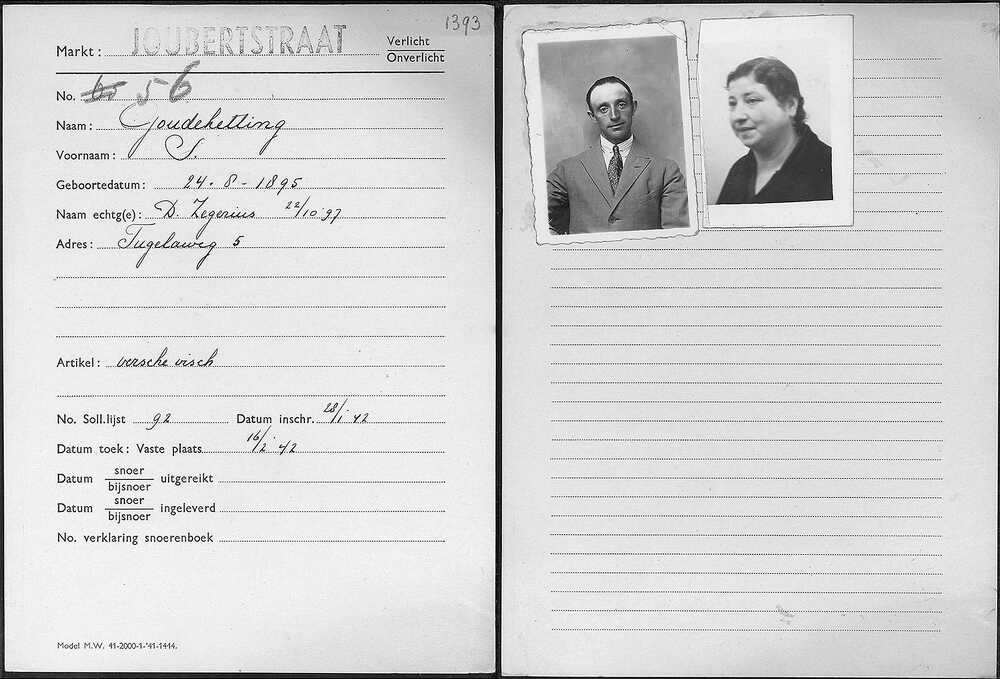 1393
Markt: JOUBERTSTRAAT Verlicht
Onverlicht
No. 56
Naam: Goudeketting
Voornaam: S.
Geboortedatum: 24-8-1895
Naam echtg(e): D. Zegerius 22/10 97
Adres: Tugelaweg 5
Artikel: versche visch
No. Soll.lijst 92 Datum inschr. 28/1 42
Datum toek: Vaste plaats 16/2 42
Datum snoer
bijsnoer uitgereikt
Datum snoer
bijsnoer ingeleverd
No. verklaring snoerenboek
Model M.W. 41-2000-1-'41-1444.